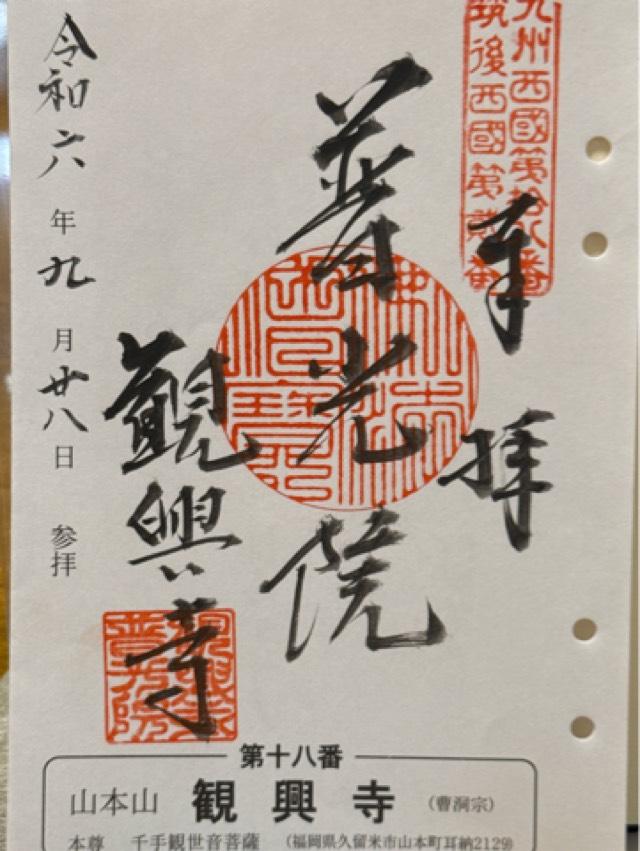 九州西國第拾八番
筑後西國第貳番
奉拝
普光院
観興寺
令和六年九月廿八日 参拝
第十八番
山本山 観興寺 (曹洞宗)
本尊 千手観世音菩薩 (福岡県久留米市山本町耳納2129)